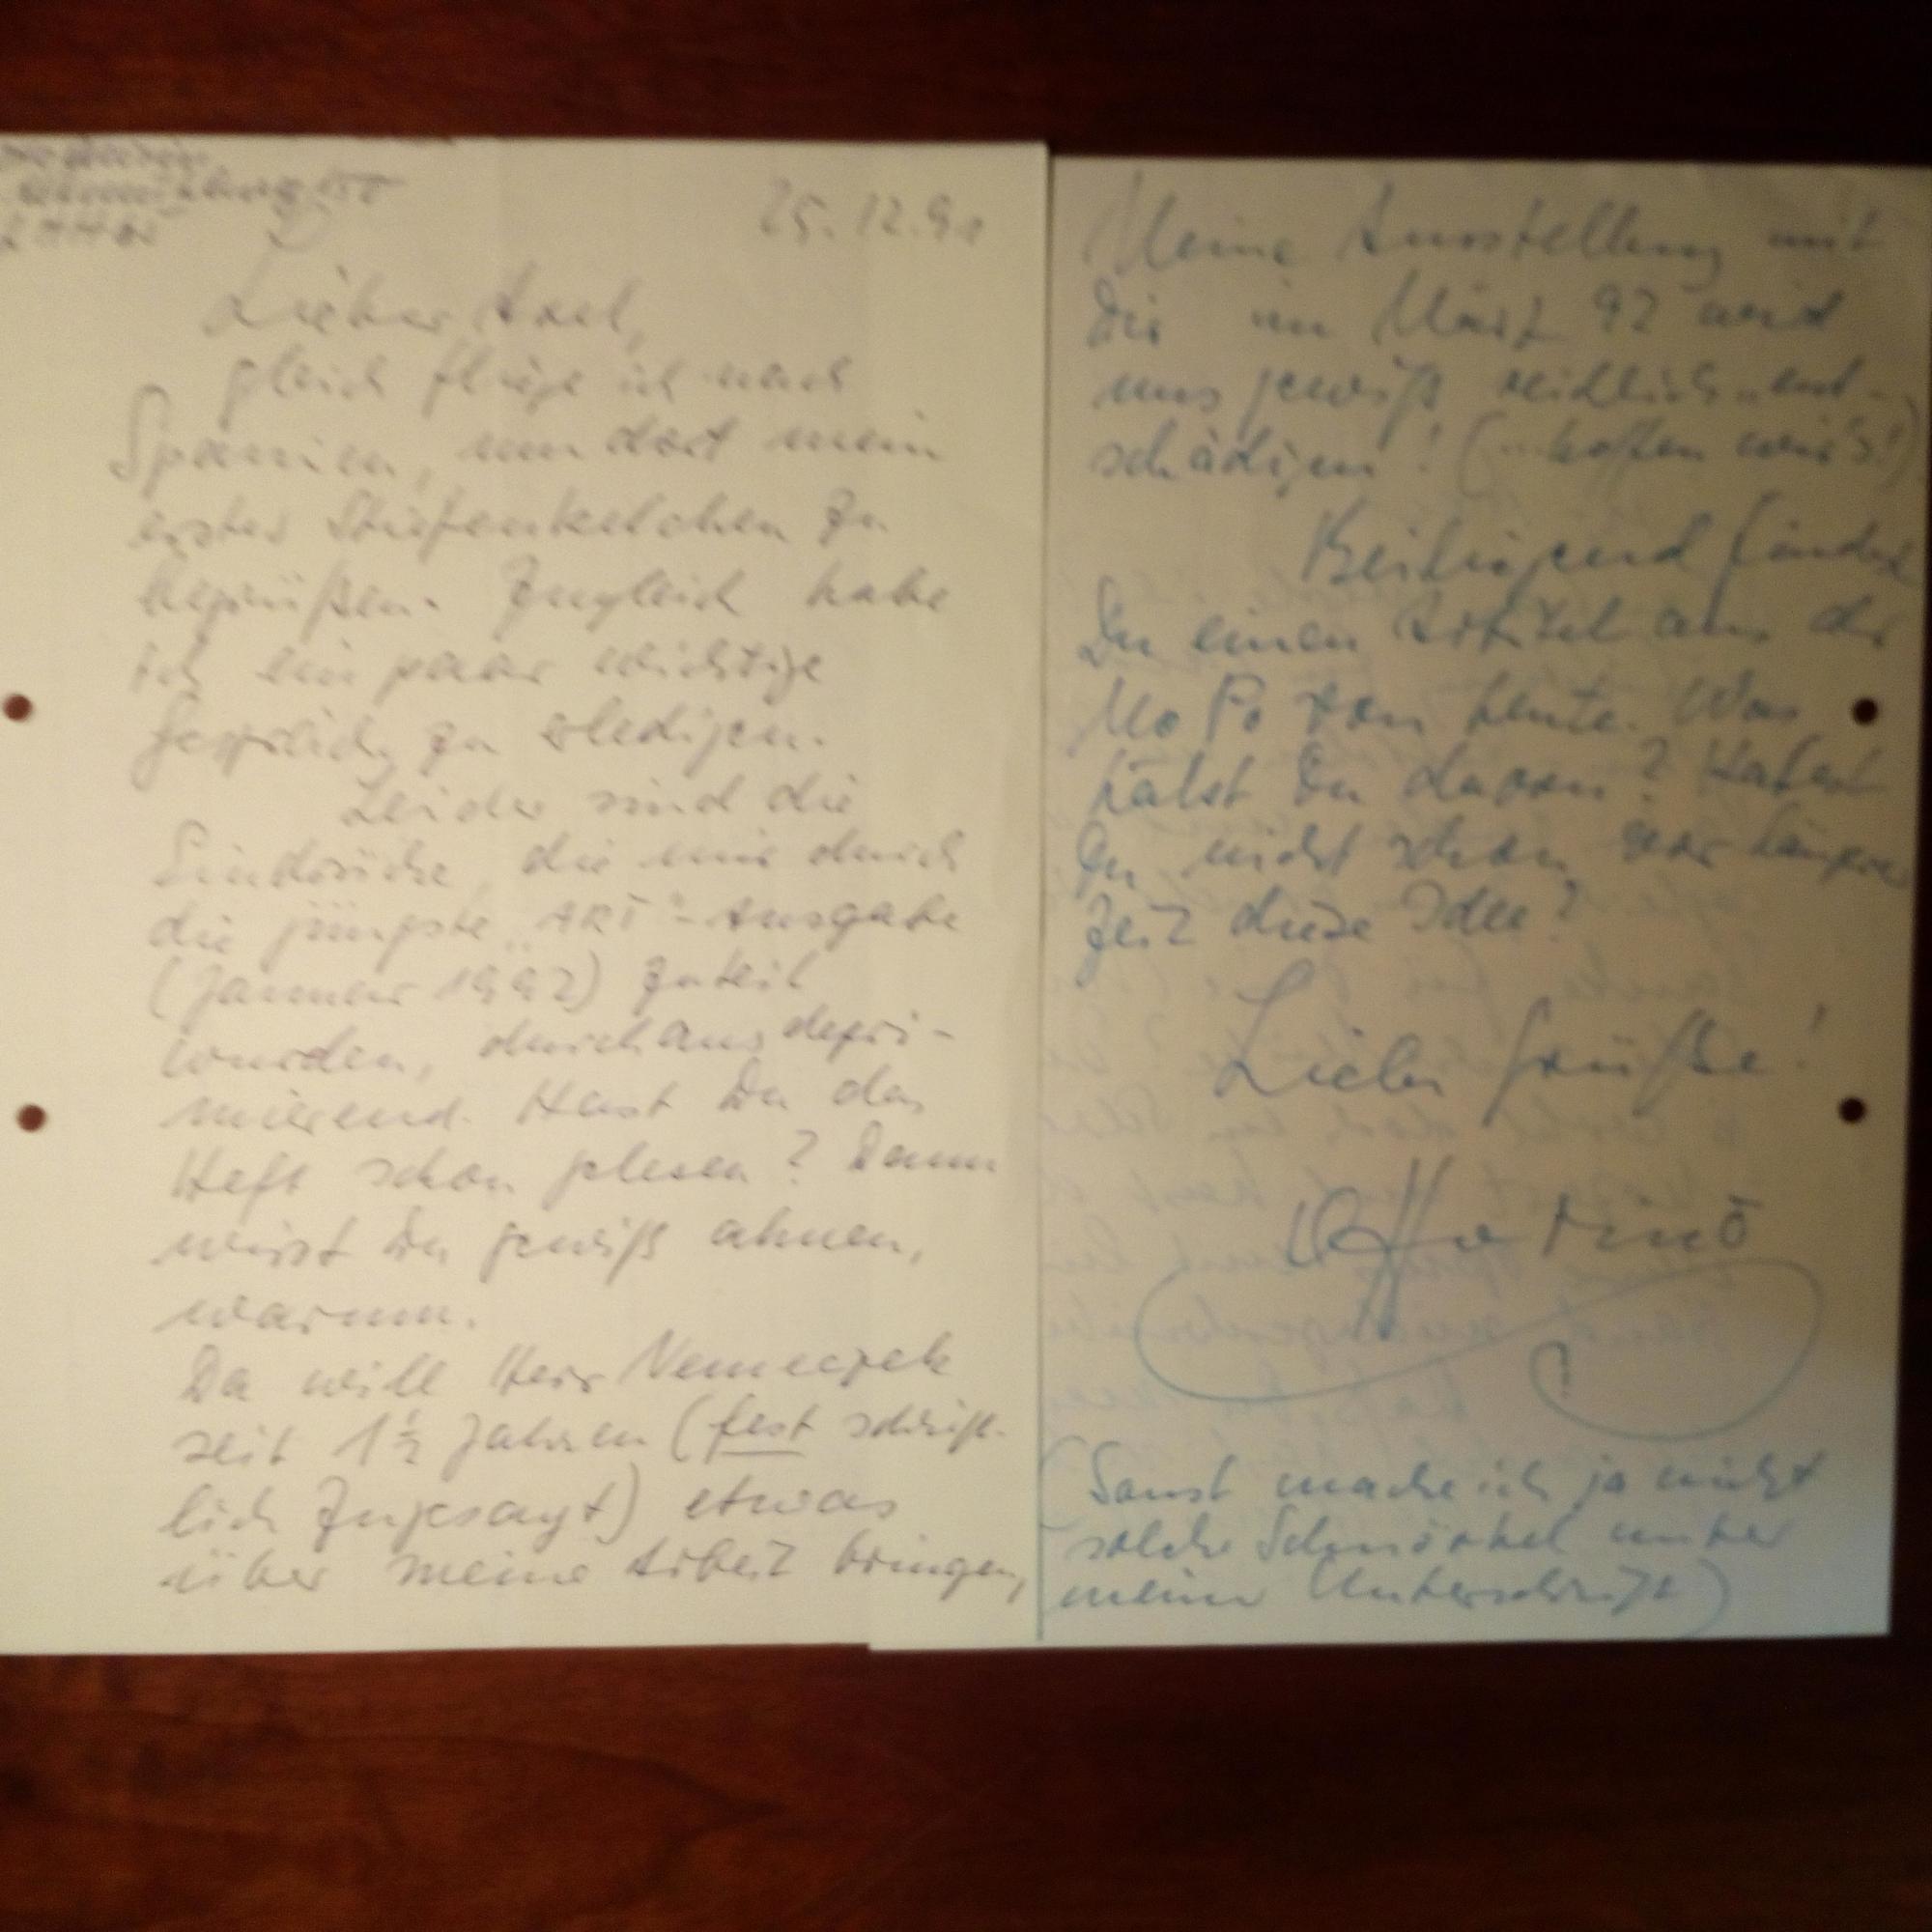 25.12.91
Lieber Axel,
gleich fliege ich nach
Spanien, um dort mein
erstes Stiefenkelchen zu
begrüßen. Zugleich habe
ich ein paar wichtige
Gespräche zu erledigen.
Leider sind die
Eindrücke, die mir durch
die jüngste „ART"-Ausgabe
(Januar 1992) zuteil
wurden, durchaus depri-
mierend. Hast Du das
Heft schon gelesen? Dann
wirst Du gewiß ahnen,
warum.
Da will Herr Nemeczek
seit 1½ Jahren (fest schrift-
lich zugesagt) etwas
über meine Arbeit bringen,
Meine Ausstellung mit
Dir im März 92 wird
uns gewiß reichlich ent-
schädigen! (...hoffen wir's!)
Beiliegend findest
Du einen Artikel aus der
MoPo von heute. Was
hälst Du davon? Hattest
Du nicht schon vor längerer
Zeit diese Idee?
Liebe Grüße!
(Sonst mache ich ja nicht
solche Schnörkel unter
meine Unterschrift)